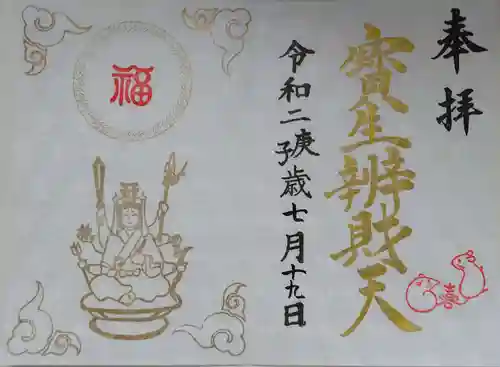 奉拝
寳生辨財天
令和二庚子歳七月十九日
福
喜